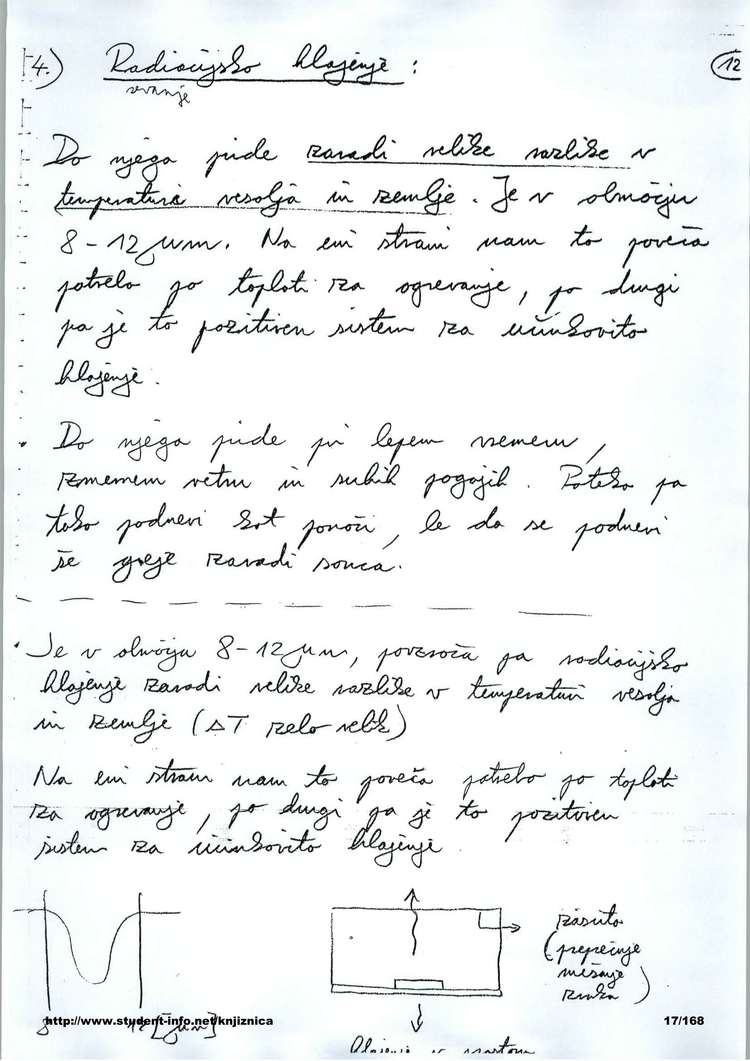 4.) Radiacijsko hlajenje :
12
sevanje
Do njega pride zaradi velike razlike v
temperaturi vesolja in zemlje. Je v območju
8-12 μm. Na eni strani nam to poveča
potrebo po toploti za ogrevanje, po drugi
pa je to pozitiven sistem za učinkovito
hlajenje.
Do njega pride pri lepem vremenu,
zmernem vetru in suhih pogojih. Poteka pa
tako podnevi kot ponoči, le da se podnevi
še greje zaradi sonca.
Je v območju 8-12 μm, povzroča pa radiacijsko
hlajenje zaradi velike razlike v temperaturi vesolja
in zemlje (ΔT zelo velik)
Na eni strani nam to poveča potrebo po toploti
za ogrevanje, po drugi pa je to pozitiven
sistem za učinkovito hlajenje
zasuto
(preprečuje
mešanje
zraka)
8 12 [μm]
http://www.student-info.net/knjiznica
17/168
hlajenje